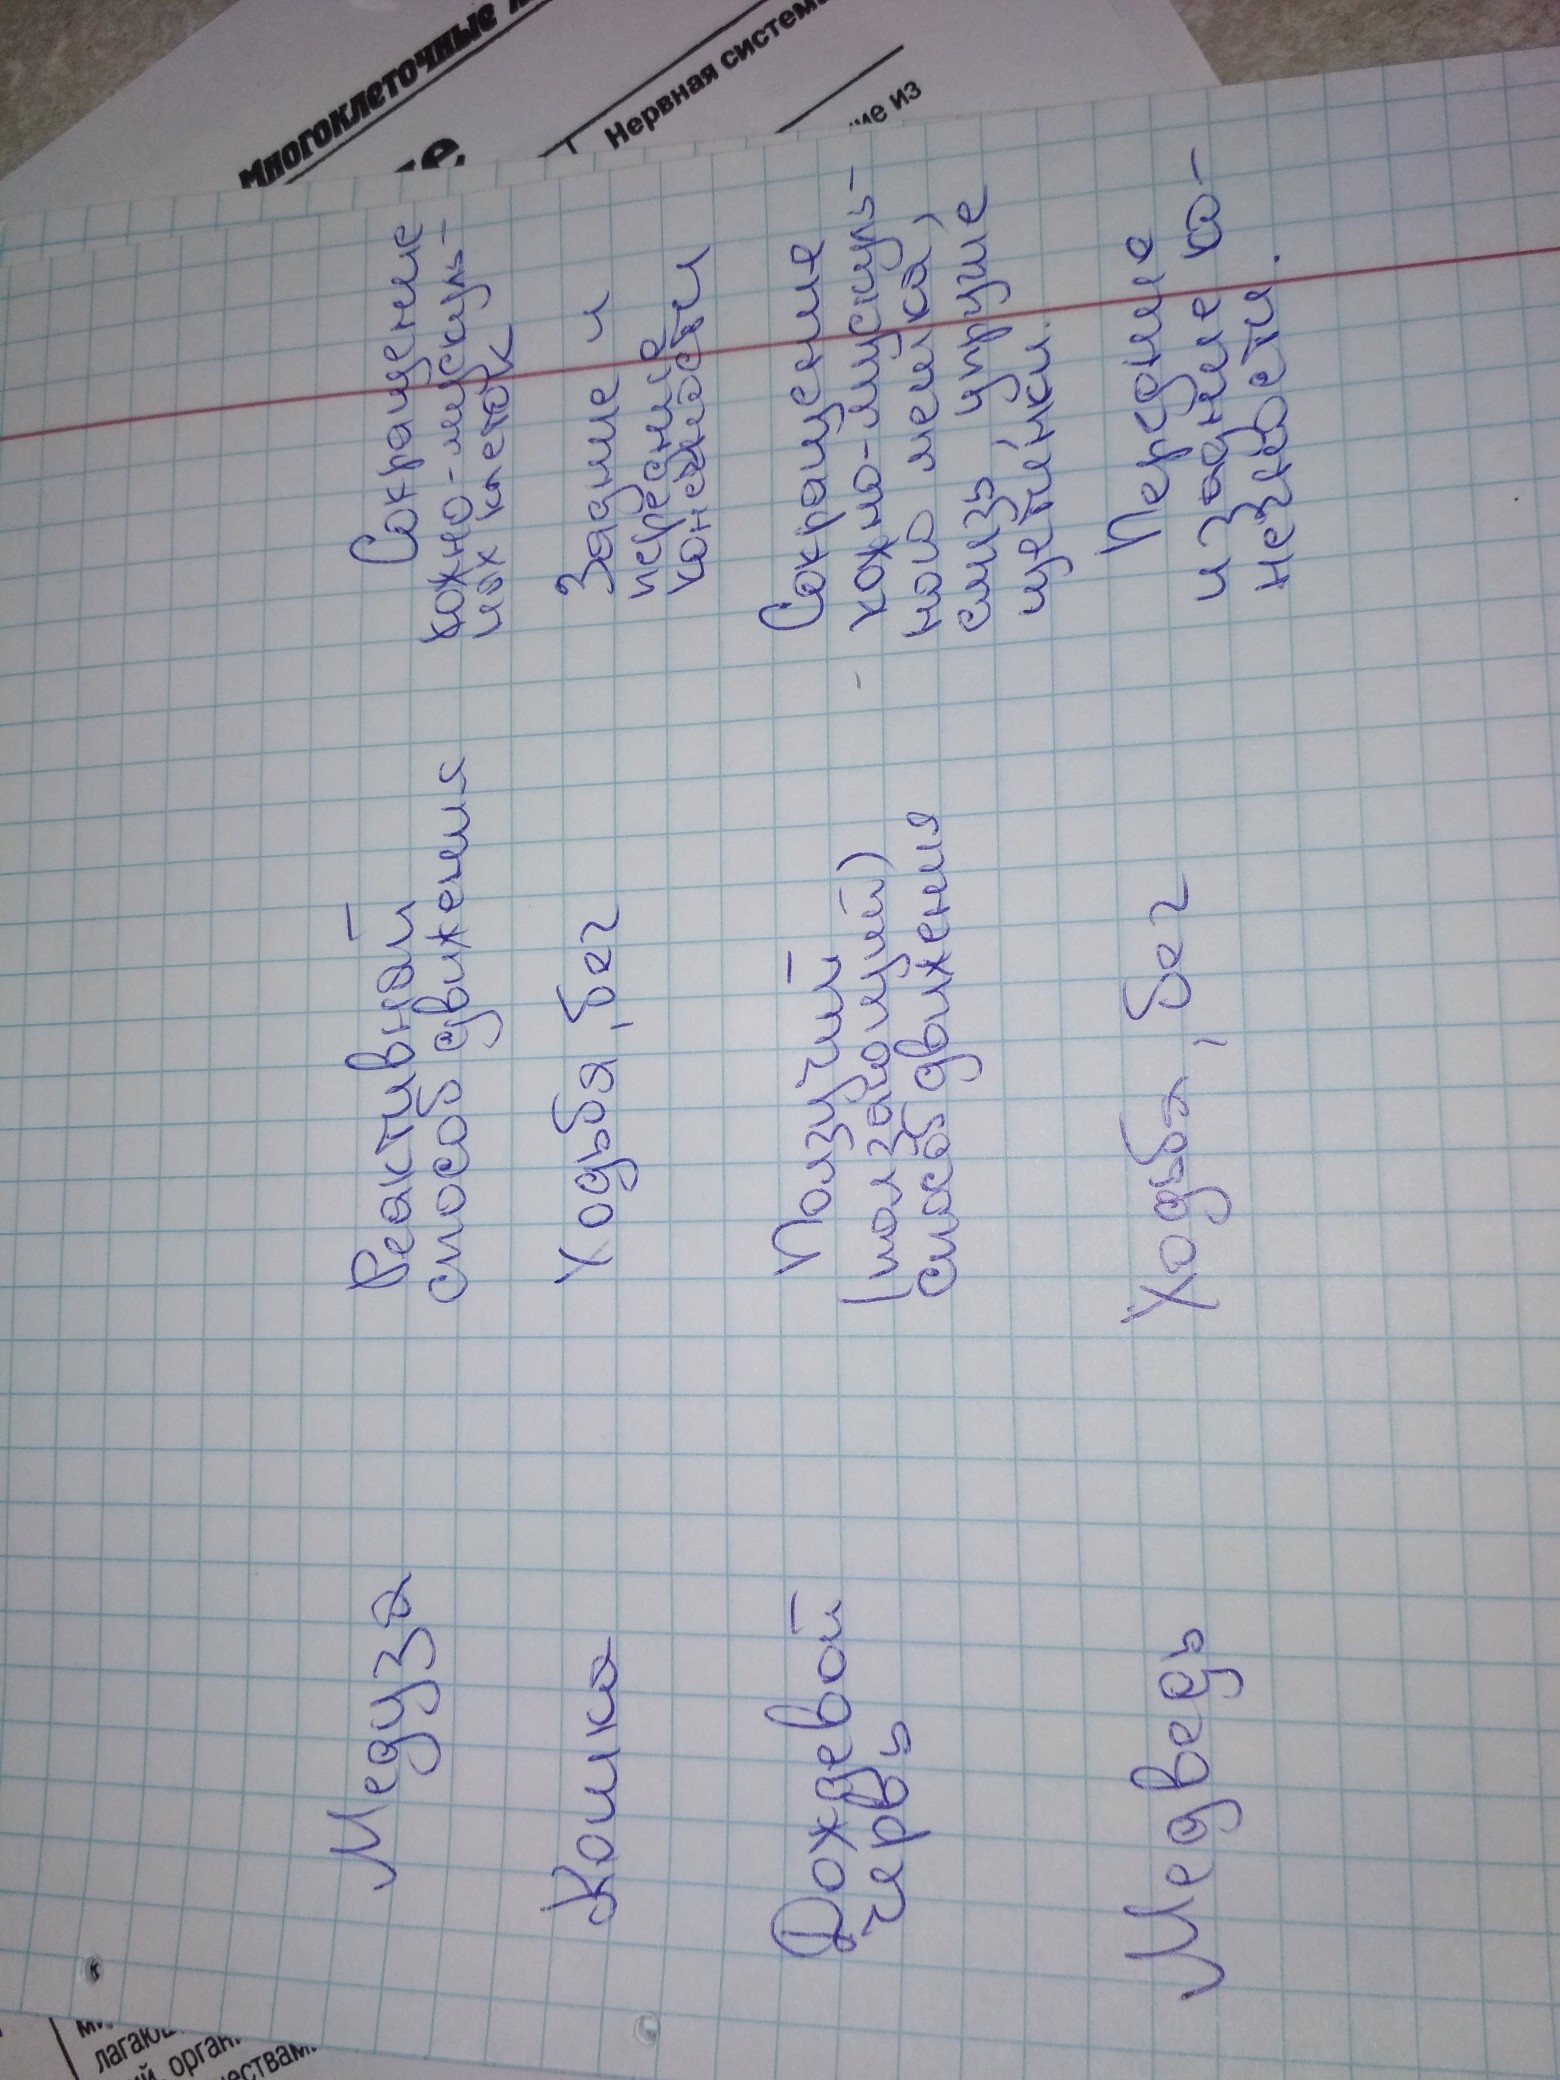 Многоклеточные
Нервная система
ие из
Медуза
Реактивный
способ движения
Сокращение
кожно-мускуль-
ных клеток
Кошка
Ходьба, бег
Задние и
передние
конечности
Дождевой
червь
Ползучий
(ползающий)
способ движения
Сокращение
кожно-мускуль-
ного мешка,
слизь упругие
щетинки.
Медведь
Ходьба, бег
Передние
и задние ко-
нечности.
лагаю
й, орган
ествам